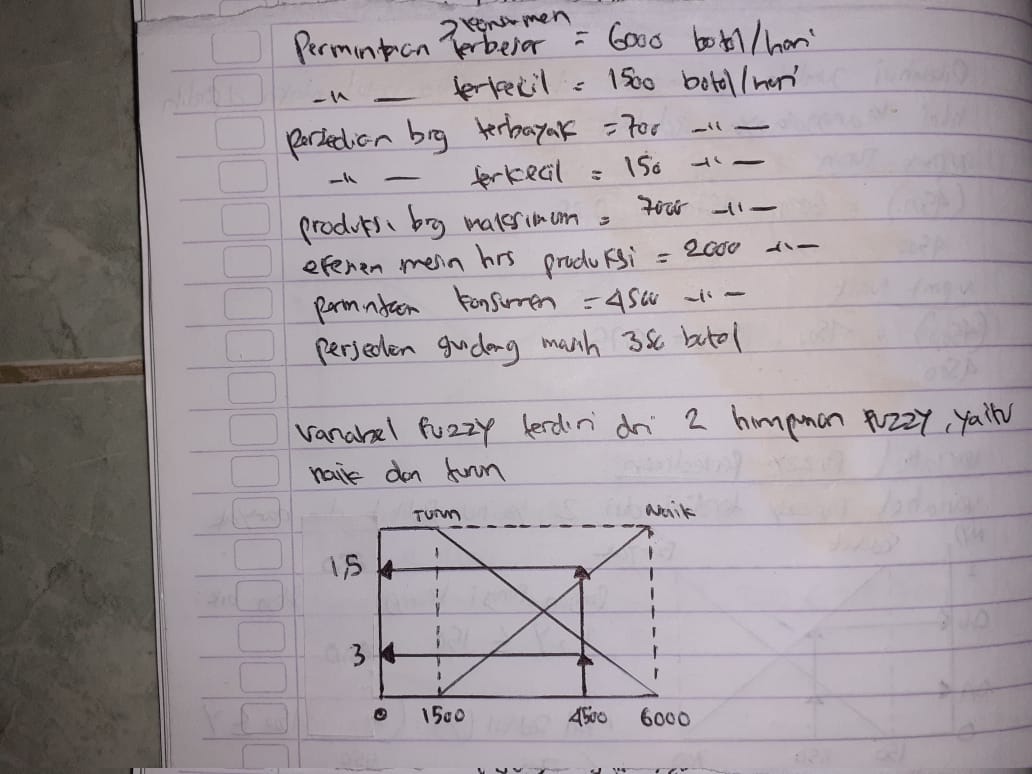 konsumen
Permintaan terbesar = 6000 botol/hari
-"- terkecil = 1500 botol/hari
persedian brg terbayak = 700 -"-
-"- terkecil = 150 -"-
produksi brg maksimum = 7000 -"-
mesin hrs produksi = 2000 -"-
permintaan konsumen = 4500 -"-
gudang masih 350 botol
variabel fuzzy terdiri dri 2 himpunan fuzzy, yaitu
naik dan turun
Turun Naik
1,5
3
0 1500 4500 6000